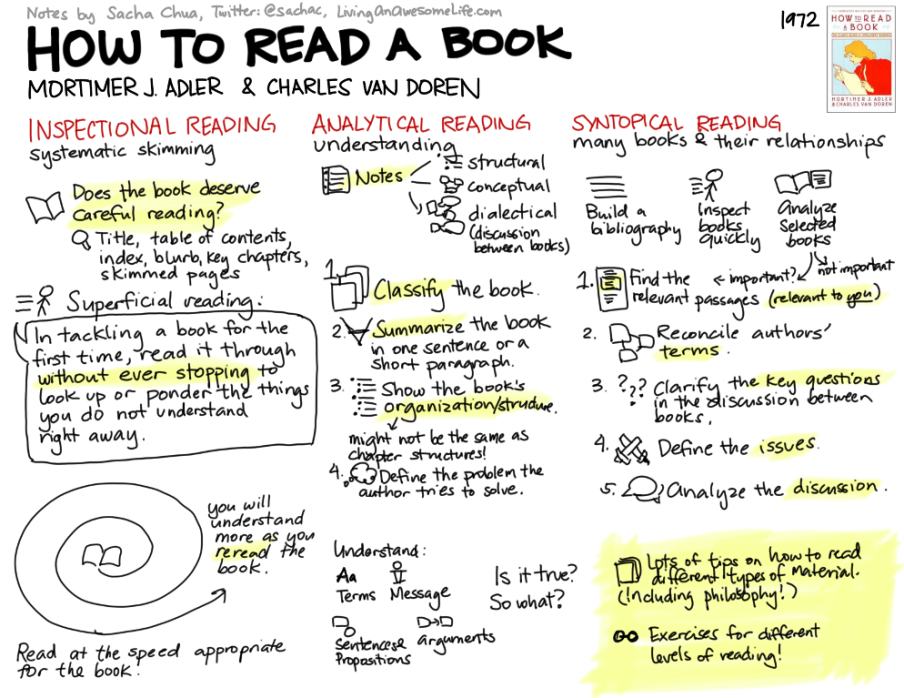 Notes by Sacha Chua, Twitter: @sachac, LivingAnAwesomeLife.com
HOW TO READ A BOOK
MORTIMER J. ADLER & CHARLES VAN DOREN
1972
HOW TO READ
A BOOK
MORTIMER J. ADLER
& CHARLES VAN DOREN
INSPECTIONAL READING
systematic skimming
Does the book deserve
careful reading?
Title, table of contents,
index, blurb, key chapters,
skimmed pages
Superficial reading:
In tackling a book for the
first time, read it through
without ever stopping to
look up or ponder the things
you do not understand
right away.
you will
understand
more as you
reread the
book.
Read at the speed appropriate
for the book.
ANALYTICAL READING
understanding
Notes
structural
conceptual
dialectical
(discussion
between books)
1. Classify the book.
2. Summarize the book
in one sentence or a
short paragraph.
3. Show the book's
organization/structure.
might not be the same as
chapter structures!
4. Define the problem the
author tries to solve.
Understand:
Aa
Terms Message
Sentences &
Propositions
arguments
Is it true?
So what?
SYNTOPICAL READING
many books & their relationships
Build a
bibliography
Inspect
books
quickly
Analyze
selected
books
important?
not important
1. Find the
relevant passages (relevant to you)
2. Reconcile authors'
terms.
3. ??? Clarify the key questions
in the discussion between
books.
4. Define the issues.
5. Analyze the discussion.
Lots of tips on how to read
different types of material.
(Including philosophy!)
Exercises for different
levels of reading!